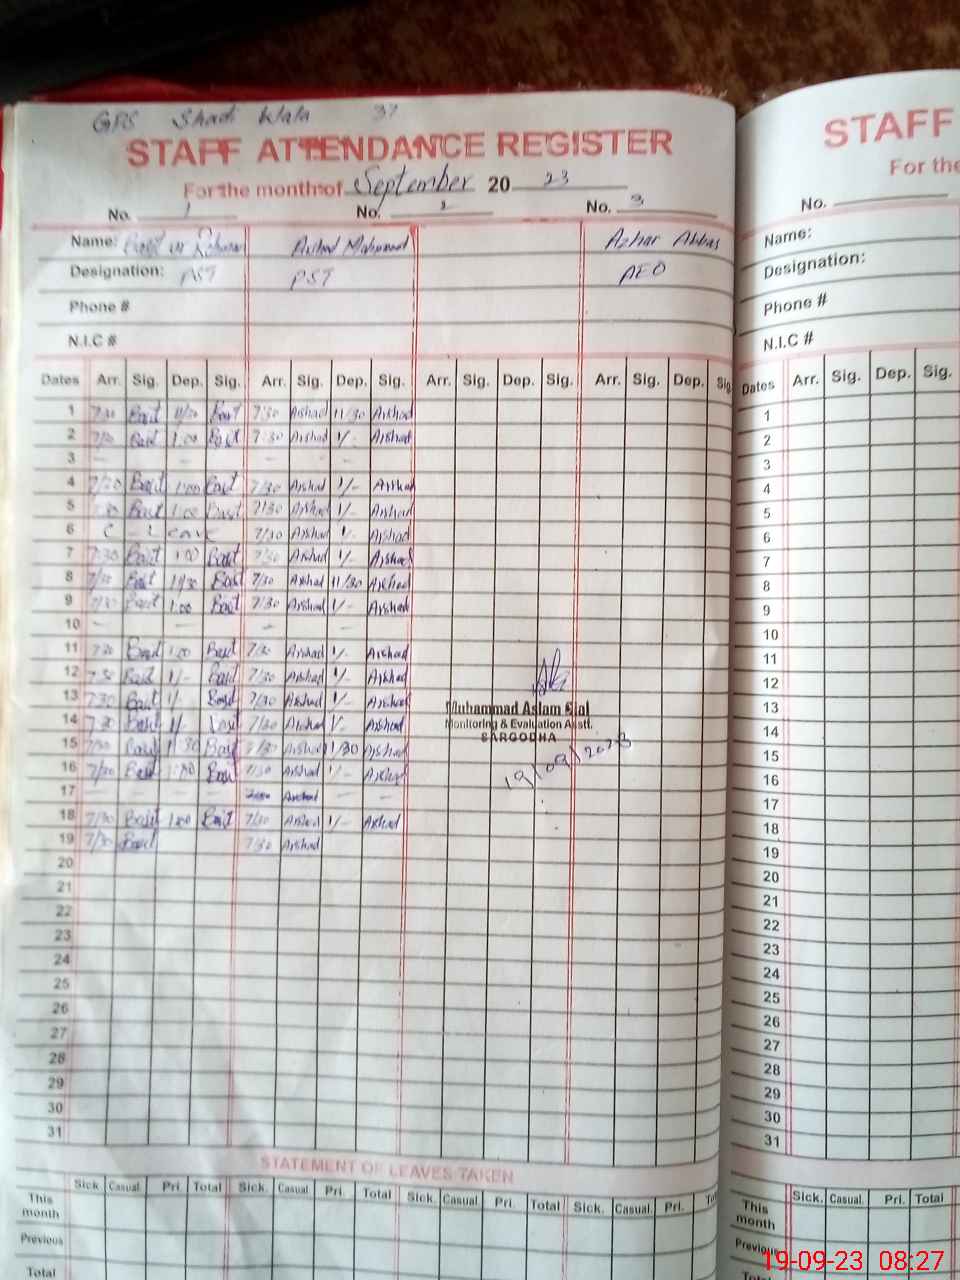 GPS Shadi Wala 37
STAFF ATTENDANCE REGISTER
For the month of September 20 23
No. 1 No. 2 No. 3
Name: Arshad Mahmood Azhar Abbas
Designation: PST PST AEO
Phone #
N.I.C #
Dates Arr. Sig. Dep. Sig. Arr. Sig. Dep. Sig. Arr. Sig. Dep. Sig. Arr. Sig. Dep. Sig
1 7/30 Basit 11/30 Basit 7/30 Arshad 11/30 Arshad
2 7/30 Basit 1:00 Basit 7/30 Arshad 1/- Arshad
3 — — — —
4 7/30 Basit 1:00 Basit 7/30 Arshad 1/- Arshad
5 7:30 Basit 1:00 Basit 7/30 Arshad 1/- Arshad
6 C - Leave 7/30 Arshad 1/- Arshad
7 7:30 Basit 1:00 Basit 7/30 Arshad 1/- Arshad
8 7/30 Basit 11/30 Basit 7/30 Arshad 11/30 Arshad
9 7/30 Basit 1:00 Basit 7/30 Arshad 1/- Arshad
10 — — — —
11 7:30 Basit 1:00 Basit 7/30 Arshad 1/- Arshad
12 7:30 Basit 1/- Basit 7/30 Arshad 1/- Arshad
13 7:30 Basit 1/- Basit 7/30 Arshad 1/- Arshad
14 7:30 Basit 1/- Basit 7/30 Arshad 1/- Arshad
15 7/30 Basit 11:30 Basit 7/30 Arshad 11/30 Arshad
16 7/30 Basit 1:00 Basit 7/30 Arshad 1/- Arshad
17 Arshad — —
18 7/30 Basit 1:00 Basit 7/30 Arshad 1/- Arshad
19 7/30 Basit 7/30 Arshad
20
21
22
23
24
25
26
27
28
29
30
31
Muhammad Aslam Sial
Monitoring & Evaluation Asstt.
SARGODHA
19/09/2023
STATEMENT OF LEAVES TAKEN
Sick. Casual Pri. Total Sick. Casual Pri. Total Sick. Casual. Pri. Total Sick. Casual. Pri. Tot
This month
Previous
Total
STAFF
For the
No.
Name:
Designation:
Phone #
N.I.C #
Dates Arr. Sig. Dep. Sig.
1
2
3
4
5
6
7
8
9
10
11
12
13
14
15
16
17
18
19
20
21
22
23
24
25
26
27
28
29
30
31
Sick. Casual. Pri. Total
This month
Previous
Total
19-09-23 08:27